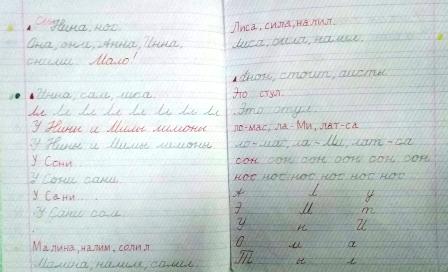 Нина, нос.
Она, они, Анна, Инна,
Мало!
Инна, сам,
м м м м м м м м
У Нины и Милы лимоны
У Нины и Милы лимоны.
У Сони
У Сони сани.
У Сани . . .
У Сани сом.
Малина, налим, солил
Малина, налим, солил.
Лиса, сила, налил.
Лиса, сила, налил.
стоит, аисты
Это стул.
Это стул.
ло-мас, ла-Ми, лат-са
ло-мас, ла-Ми, лат-са
сон сон сон сон сон сон
нос нос нос нос нос нос
А l у
Э М т
У н И
О м а
Т ы л